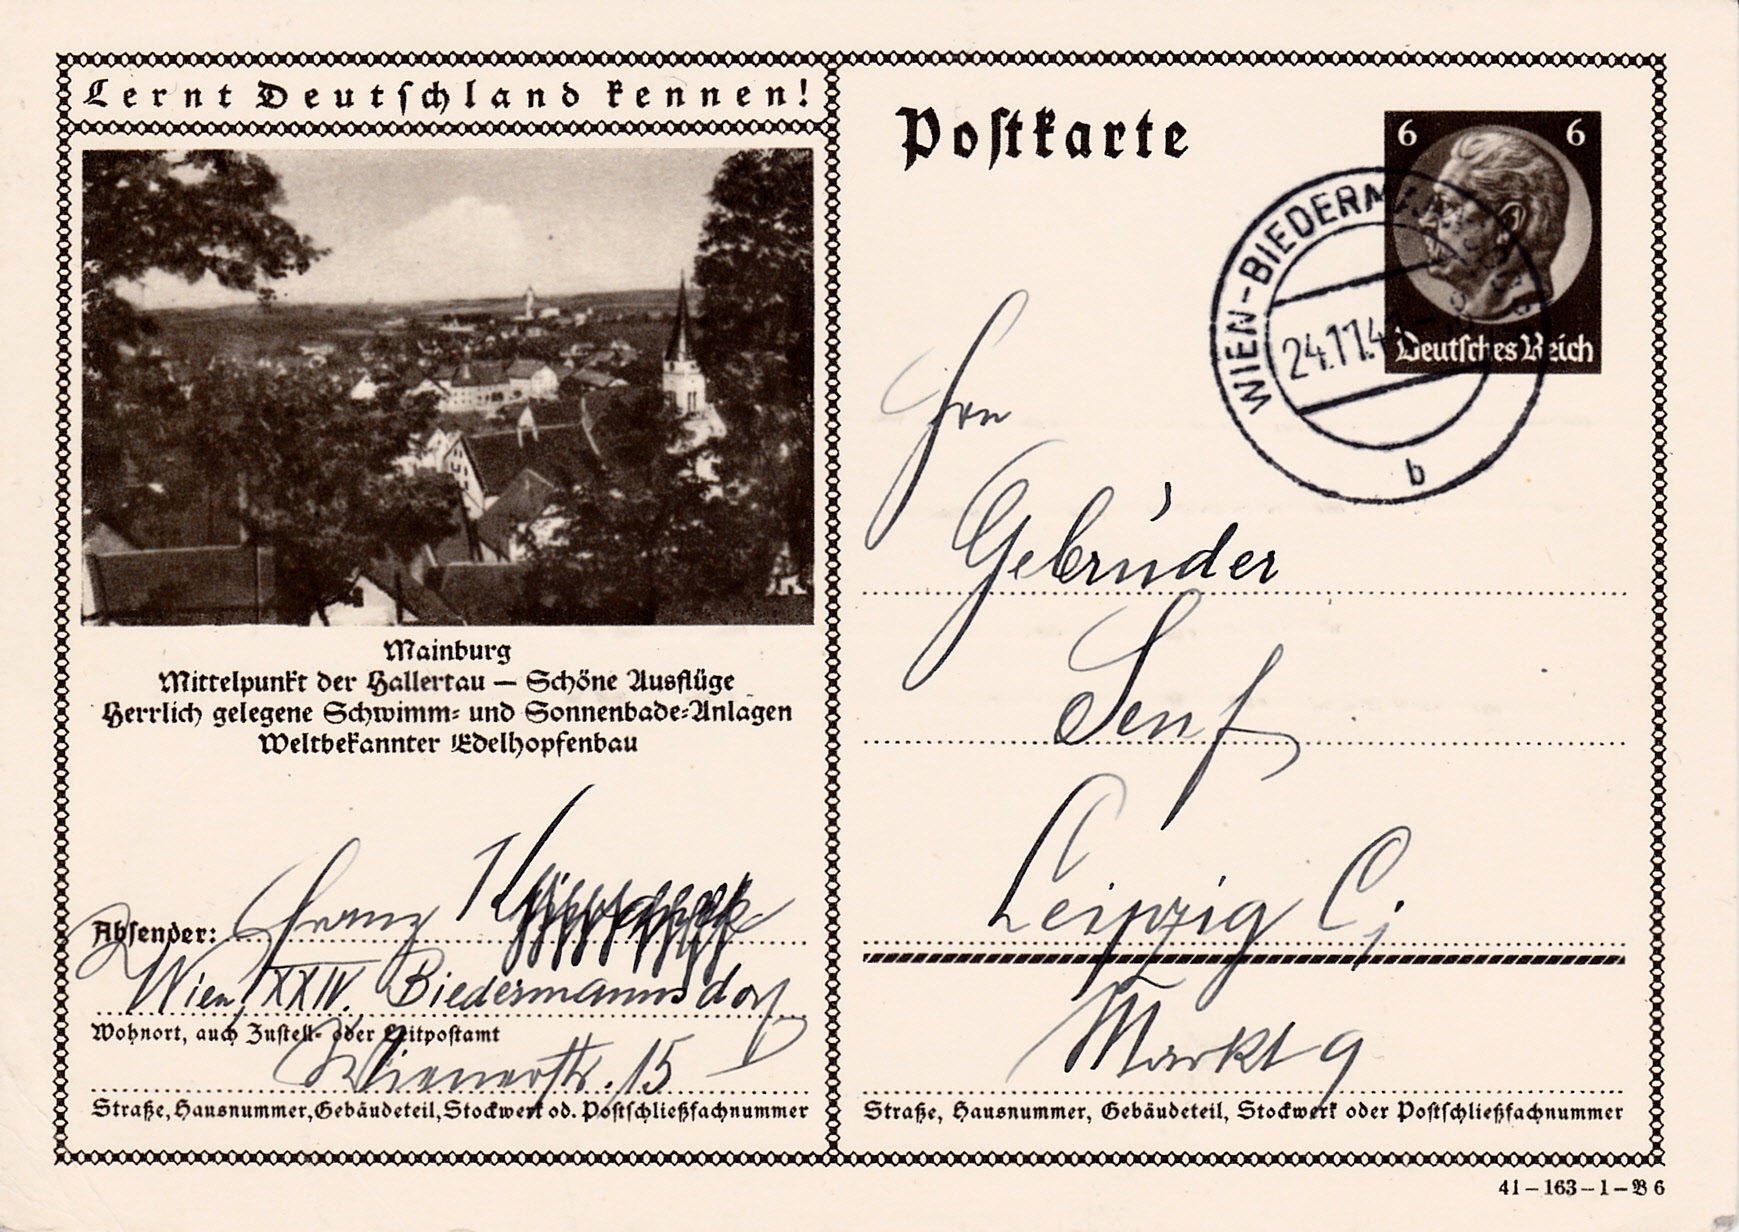 Lernt Deutschland kennen!
Mainburg
Mittelpunkt der Hallertau — Schöne Ausflüge
Herrlich gelegene Schwimm- und Sonnenbade-Anlagen
Weltbekannter Edelhopfenbau
Absender: Franz
Wien, XXIV. Biedermannsdorf
Wohnort, auch Zustell- oder Leitpostamt
Wienerstr. 15
Straße, Hausnummer, Gebäudeteil, Stockwerk od. Postschließfachnummer
Postkarte
6 6
Deutsches Reich
WIEN-BIEDERMANNSDORF
24.11.4
b
Gebrüder
Senf
Leipzig C1
Markt 9
Straße, Hausnummer, Gebäudeteil, Stockwerk oder Postschließfachnummer
41 – 163 – 1 – B 6